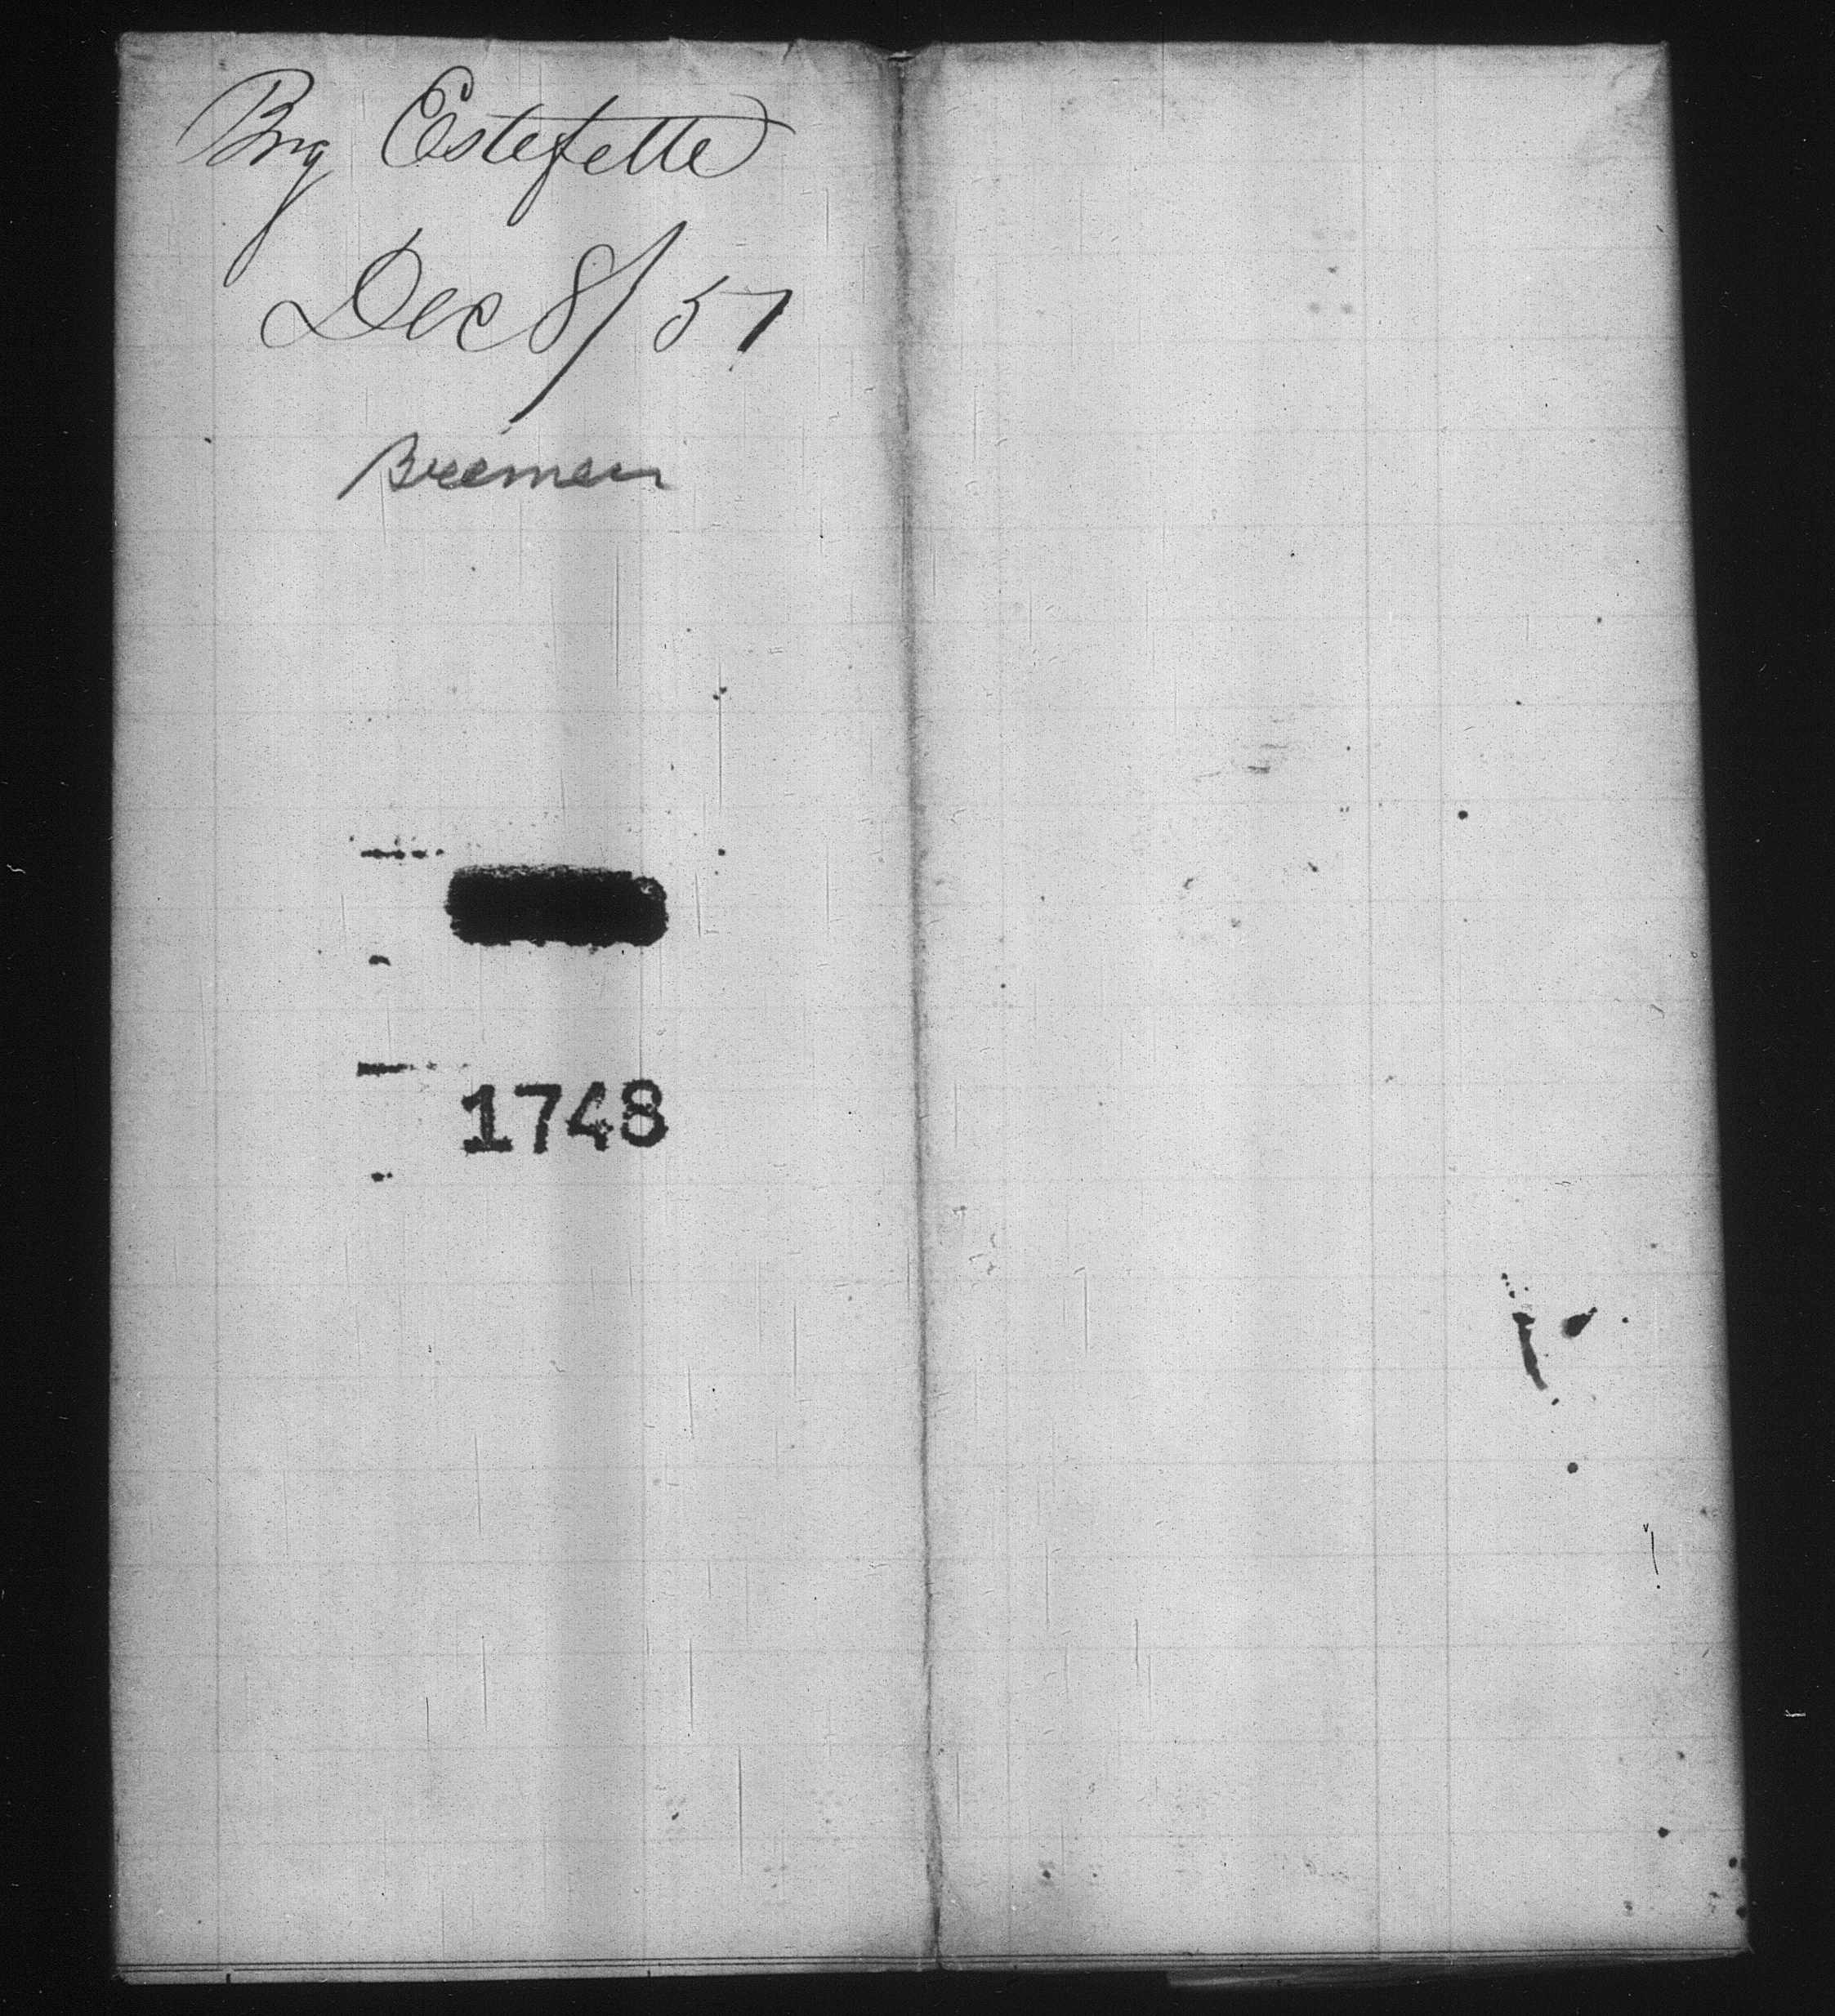 Brig Estefette
Dec 8/57
Bremen
1748